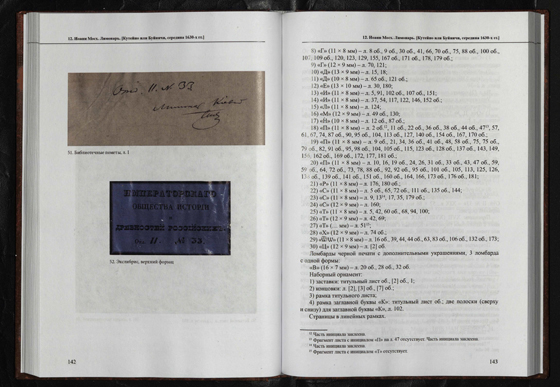 12. Иоанн Мосх. Лимонарь. [Кутейно или Буйничи, середина 1630-х гг.]
Отд. II. № 33
51. Библиотечные пометы, л. 1
ИМПЕРАТОРСКАГО
ОБЩЕСТВА ИСТОРІИ
ДРЕВНОСТЕЙ РОССІЙСКИХЪ
Отд. II № 33.
52. Экслибрис, верхний форзац
142
12. Иоанн Мосх. Лимонарь. [Кутейно или Буйничи, середина 1630-х гг.]
8) «Г» (11 × 8 мм) – л. 8 об., 9 об., 30 об., 41, 66, 70 об., 75, 88 об., 100 об.,
109 об., 120, 123, 129, 155, 167 об., 171 об., 178, 179 об.;
9) «Г» (12 × 9 мм) – л. 70, 121;
10) «Д» (13 × 9 мм) – л. 15, 18;
11) «Д» (10 × 8 мм) – л. 65 об., 121 об.;
12) «Е» (13 × 10 мм) – л. 30, 180;
13) «И» (11 × 8 мм) – л. 5, 91, 102 об., 107 об., 151;
14) «И» (11 × 8 мм) – л. 37, 54, 117, 122, 146, 152 об.;
15) «Л» (11 × 8 мм) – л. 124;
16) «М» (12 × 9 мм) – л. 49 об., 130;
17) «Н» (10 × 8 мм) – л. 12 об., 87 об.;
18) «П» (11 × 8 мм) – л. 2 об., 11 об., 22 об., 36 об., 38 об., 44 об., 47, 57,
61, 67, 74, 87 об., 90, 95 об., 104, 113 об., 127, 140 об., 154 об., 167, 170 об.;
19) «П» (11 × 8 мм) – л. 9 об., 21, 34, 36 об., 41 об., 48, 58 об., 75, 75 об.,
79 об., 82, 91 об., 95, 98 об., 104, 105 об., 115, 123 об., 128 об., 137 об., 143, 149,
162, 169 об., 172, 177, 181 об.;
20) «П» (11 × 8 мм) – л. 10, 16, 19 об., 24, 26, 31 об., 33 об., 43, 47 об., 59,
64, 72 об., 73, 78, 88 об., 92, 92 об., 95 об., 101 об., 105, 113, 125, 126,
139 об., 141 об., 151 об., 160 об., 164, 166, 173 об., 176 об., 181;
21) «Р» (11 × 8 мм) – л. 176, 180 об.;
22) «С» (11 × 8 мм) – л. 5 об., 65, 72 об., 111 об., 135 об., 144;
23) «С» (11 × 8 мм) – л. 9, 17, 35, 179 об.;
24) «С» (12 × 9 мм) – л. 160;
25) «Т» (11 × 8 мм) – л. 5, 42 об., 60 об., 68, 94, 100;
26) «Т» (12 × 9 мм) – л. 42, 69;
27) «Т» (... мм) – л. 51
28) «Х» (12 × 9 мм) – л. 74 об.;
29) (11 × 8 мм) – л. 16 об., 39, 44, 44 об., 63, 83 об., 106 об., 132 об., 173;
30) «Ц» (12 × 9 мм) – л. [2] об.
Ломбарды черной печати с дополнительными украшениями, 3 ломбарда
одной формы:
«В» (16 × 7 мм) – л. 20 об., 28 об., 32 об.
Наборный орнамент:
1) заставки: титульный лист об., [2] об., 1;
2) концовки: л. [2], [3] об., [7] об.;
3) рамка титульного листа;
4) рамка заглавной буквы «К»: титульный лист об.; две полоски (сверху
и снизу) для заглавной буквы «К», л. 102.
Страницы в линейных рамках.
Часть инициала заклеена.
Фрагмент листа с инициалом «П» на л. 47 отсутствует. Часть инициала заклеена.
Часть инициала заклеена.
Фрагмент листа с инициалом «Т» отсутствует.
143